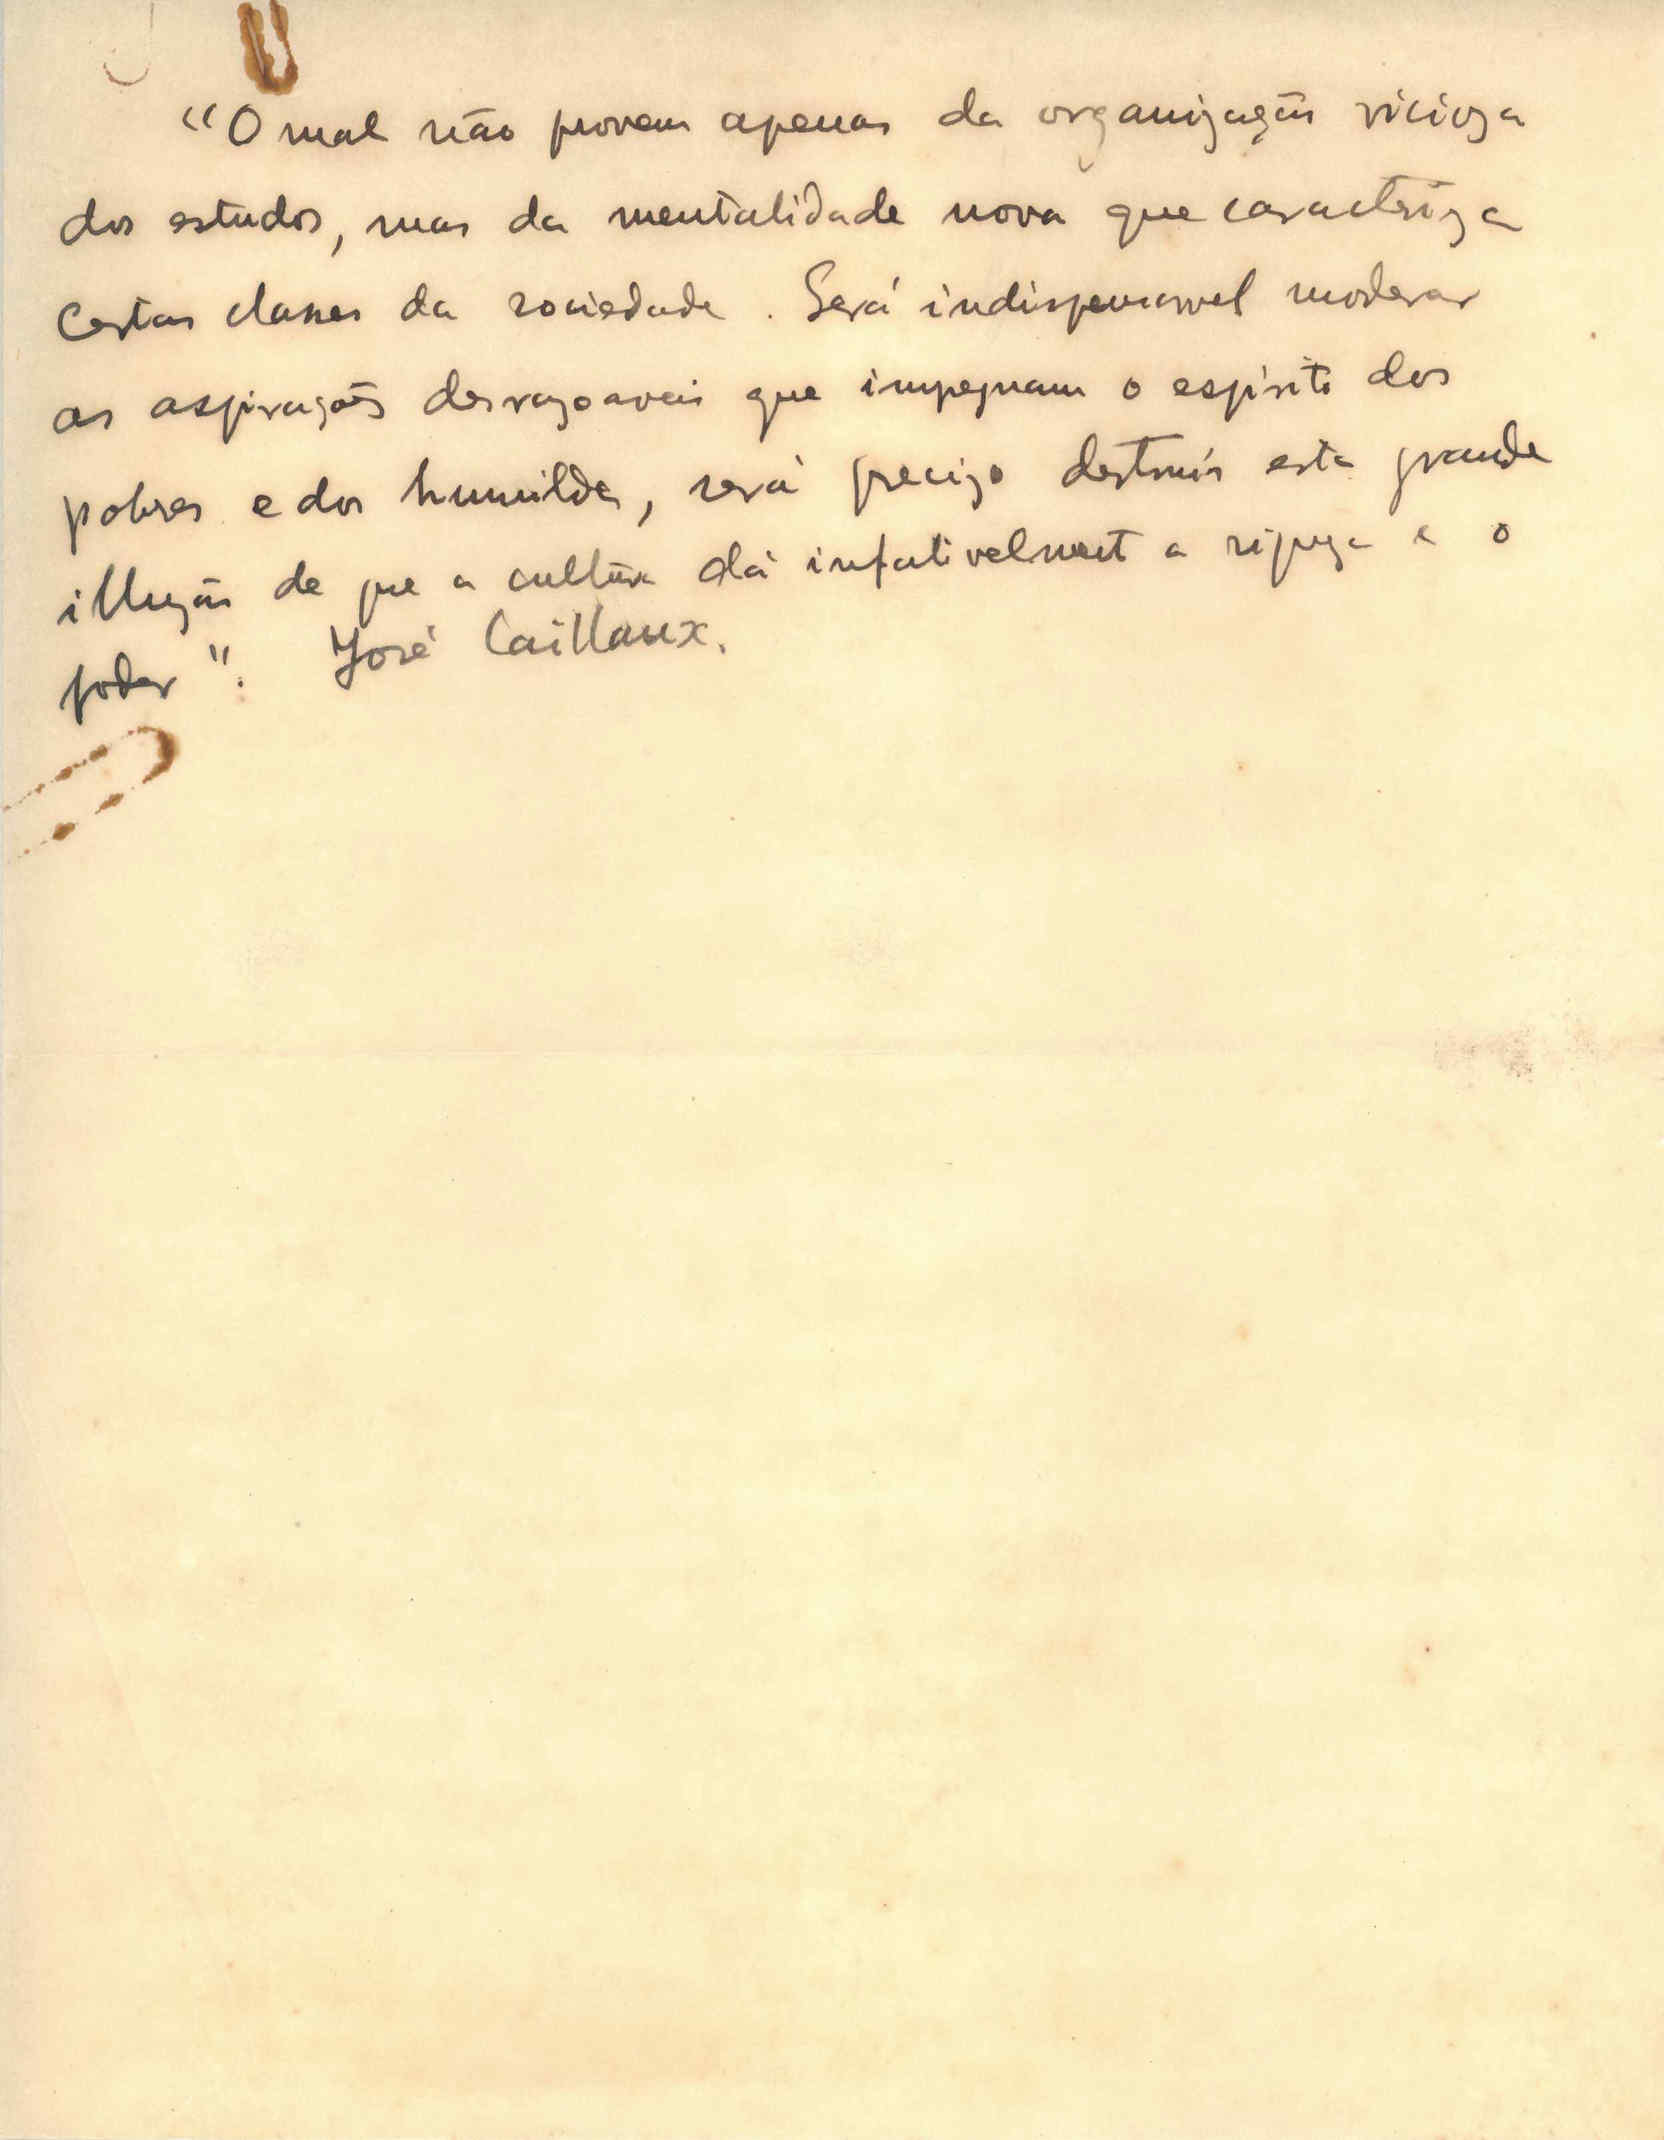 "O mal não provem apenas da organização vicioza
dos estudos, mas da mentalidade nova que caracteriza
certas classes da sociedade. Será indispensavel moderar
as aspirações desrazoaveis que impegnam o espirito dos
pobres e dos humildes, será precizo destruir esta grande
illuzão de que a cultura dá infalivelment a riqueza e o
poder". José Caillaux.